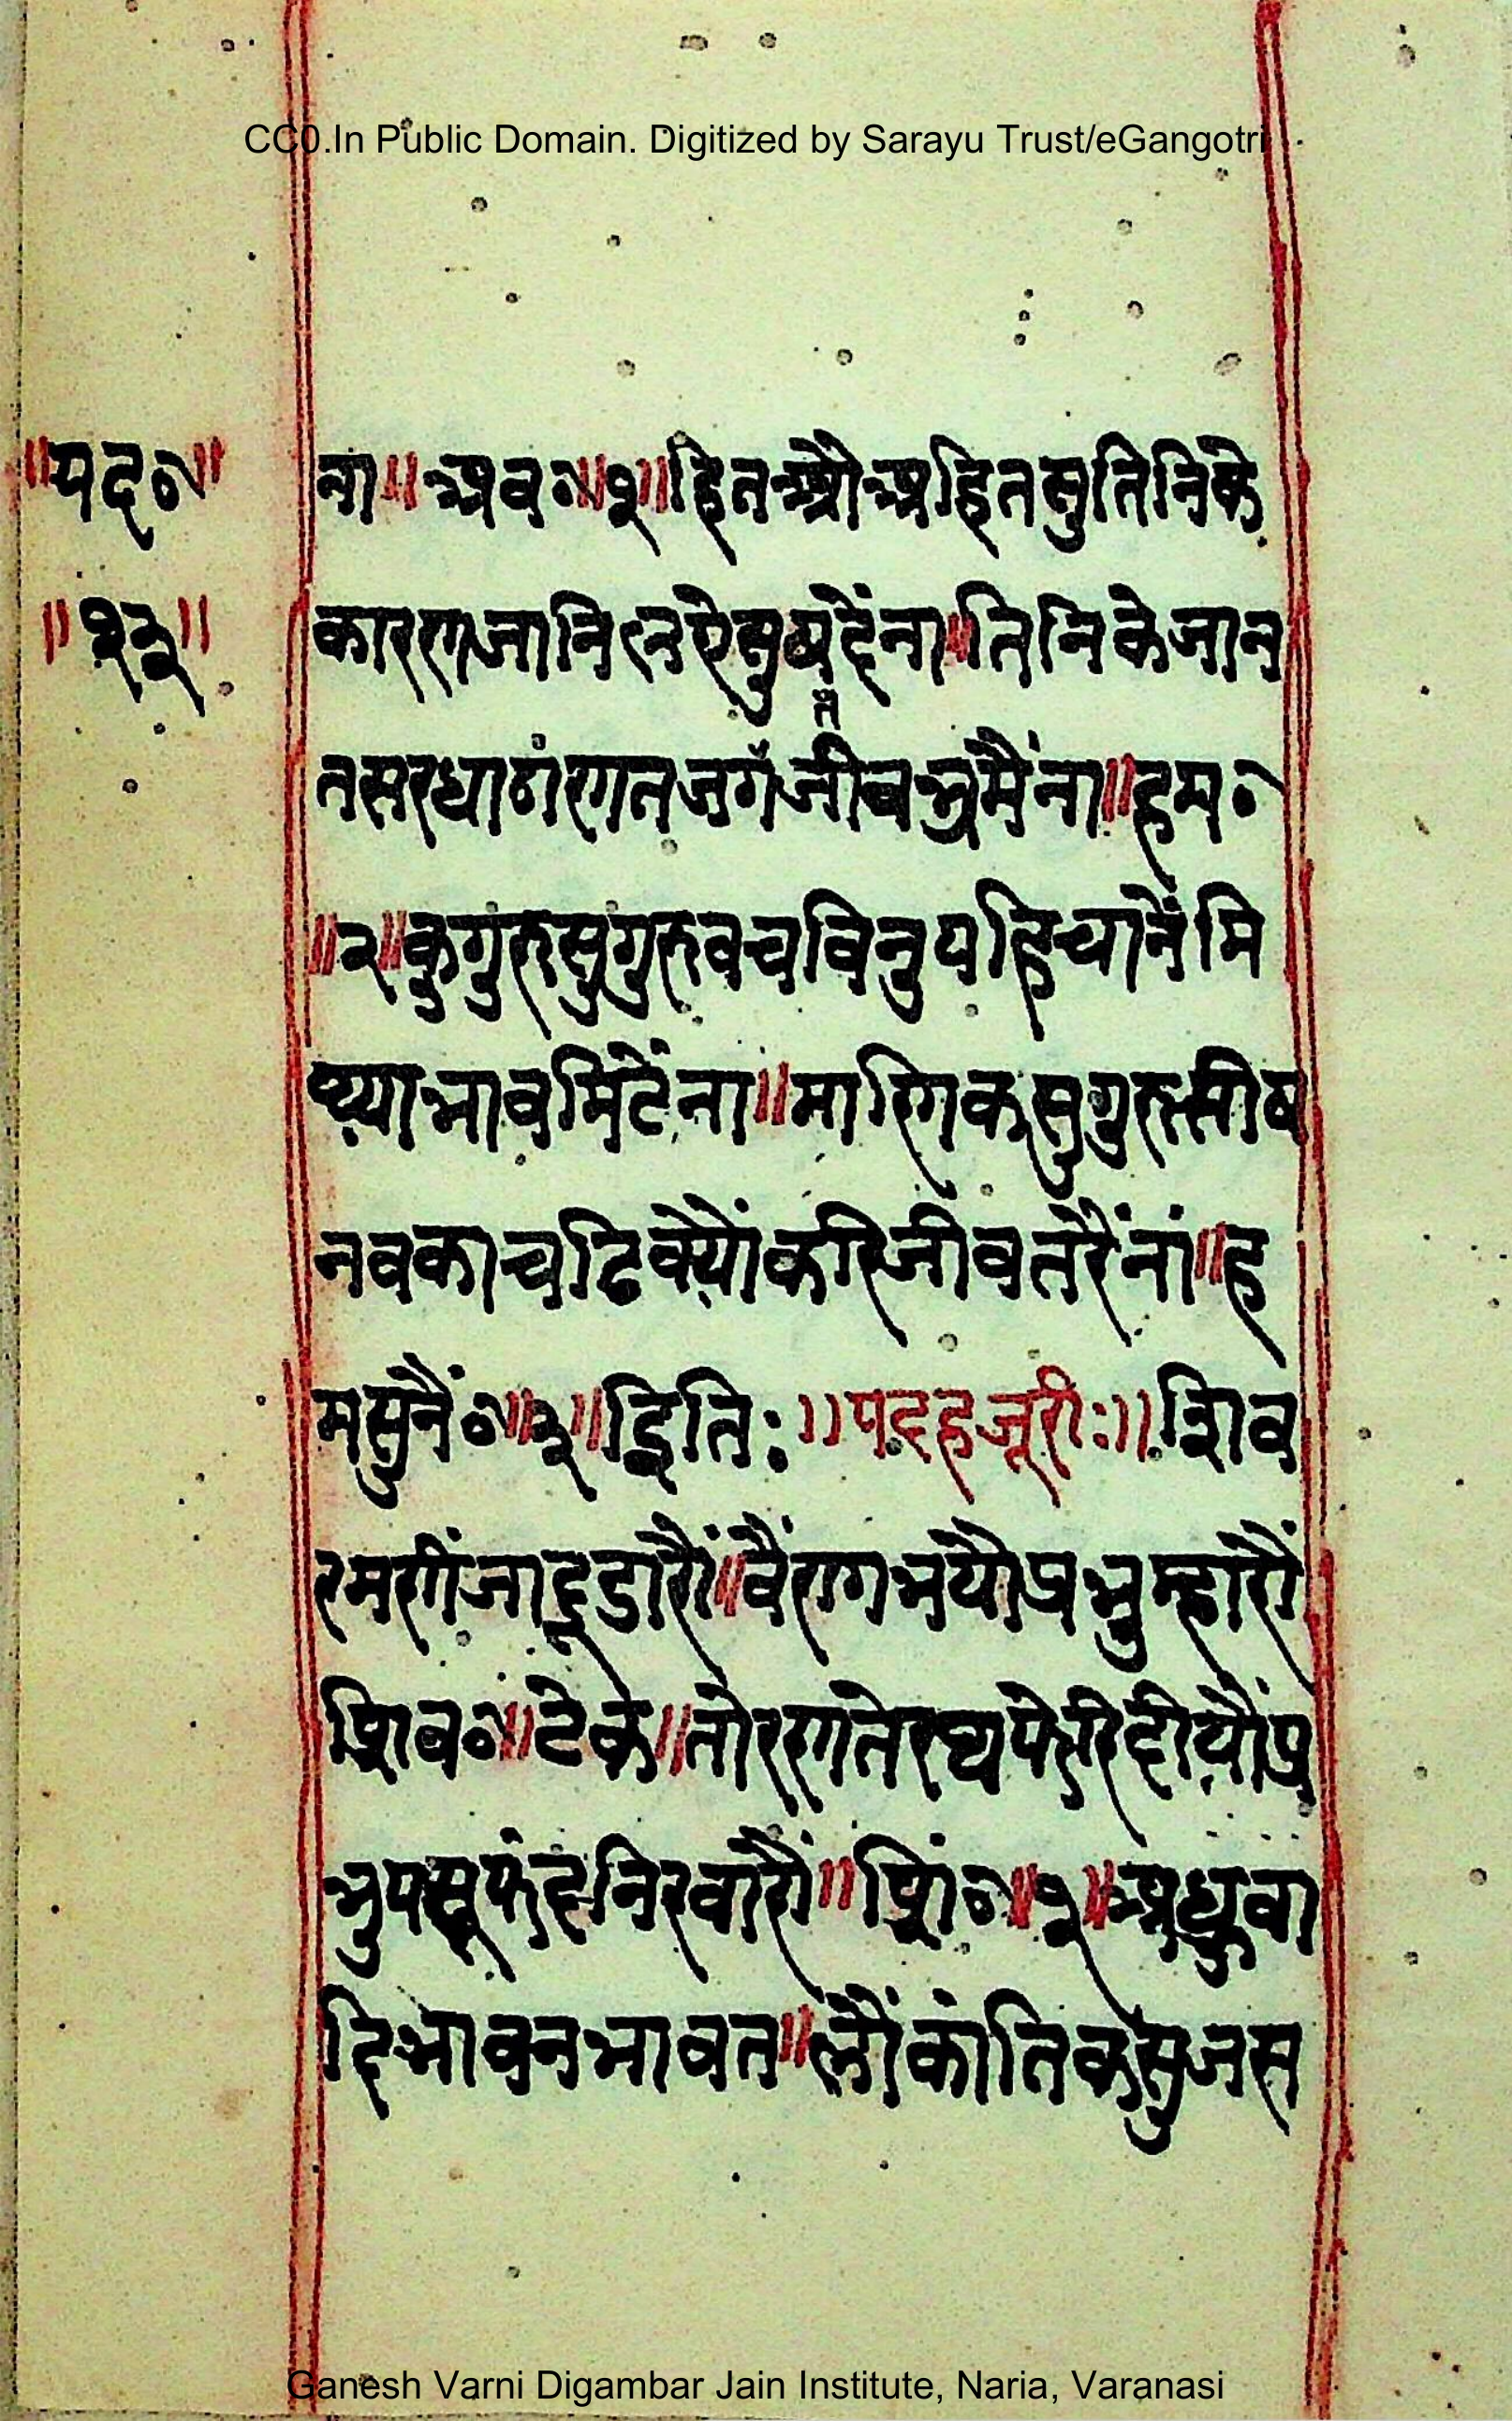 CC0.In Public Domain. Digitized by Sarayu Trust/eGangotri
॥पद॰॥
॥१३॥
ना॥ अब॰॥१॥हित औ अहित सु तिनिके
कारण जानि
सुष दैं ना॥तिनि के जान
त
न सरधा ठांणत जग जीव भ्रमैं ना॥हम॰
॥२॥कुगुरु सुगुरु वच विनु पहिचानें मि
थ्या भाव मिटें ना॥माणिक सुगुरु सीष
नवका चढि क्यों करि जीव तरैं नां॥ह
म सुनैं॰॥३॥इति:॥पद हजूरी:॥शिव
रमणीं जादू डारौं॥वैंराग भयौ प्रभु म्हारौ
शिव॰॥टेक॥तोरण ते रथ फेरि दीयौं प्र
भु पसू फंद निरवारौं॥शिं॰॥१॥अध्रुवा
दि भावन भावत॥लौंकांतिक सुजस
Ganesh Varni Digambar Jain Institute, Naria, Varanasi